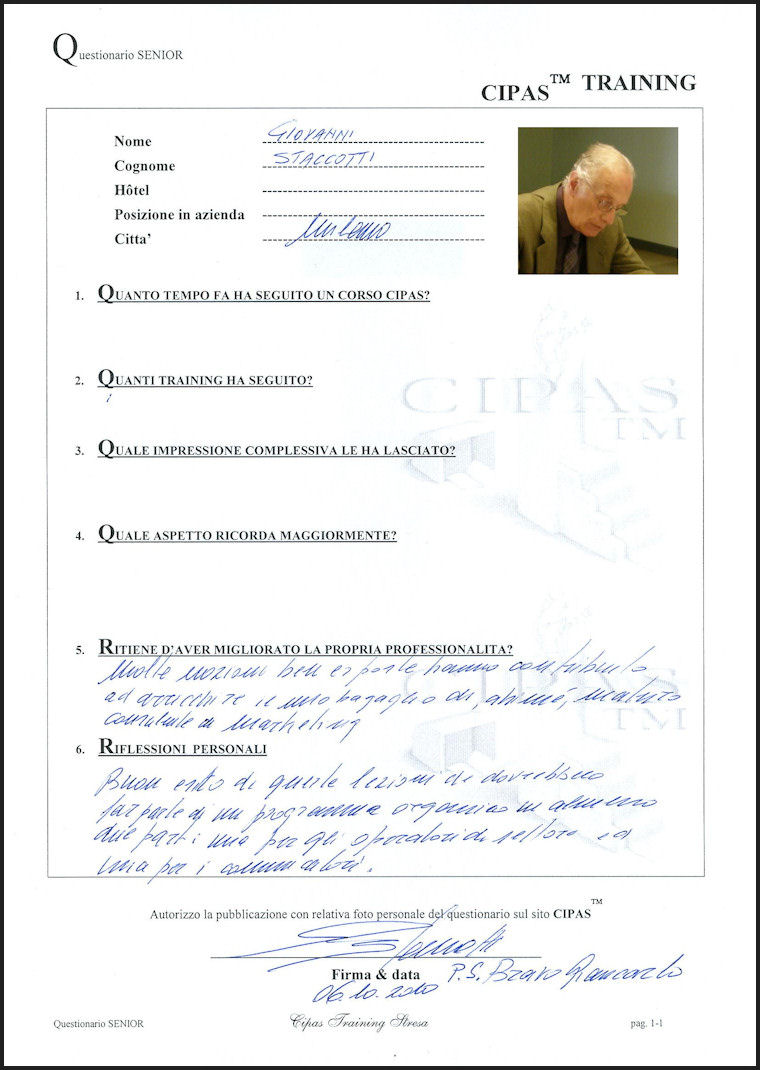 Questionario SENIOR
CIPAS™ TRAINING
Nome GIOVANNI
Cognome STACCOTTI
Hôtel
Posizione in azienda
Citta' Milano
1. QUANTO TEMPO FA HA SEGUITO UN CORSO CIPAS?
2. QUANTI TRAINING HA SEGUITO?
1
3. QUALE IMPRESSIONE COMPLESSIVA LE HA LASCIATO?
CIPAS
TM
4. QUALE ASPETTO RICORDA MAGGIORMENTE?
5. RITIENE D'AVER MIGLIORATO LA PROPRIA PROFESSIONALITA?
Molte nozioni ben esposte hanno contribuito
ad arricchire il mio bagaglio di, ahimé, maturo
consulente di marketing
CIPAS
TM
6. RIFLESSIONI PERSONALI
Buon esito di queste lezioni che dovrebbero
far parte di un programma organico in almeno
due parti una per gli operatori di settore ed
una per i comunicatori.
Autorizzo la pubblicazione con relativa foto personale del questionario sul sito CIPAS™
Firma & data P.S. Bravo Giancarlo
06.10.2010
Questionario SENIOR Cipas Training Stresa pag. 1-1